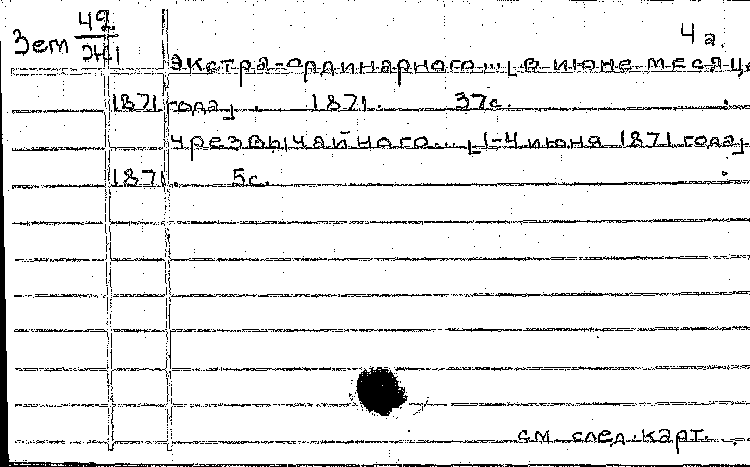 Зем 49/Ж1 4а.
экстра-ординарного... [в июне месяце
1871 года]. 1871. 37с.
чрезвычайного... [1-4 июня 1871 года]
1871. 5с.
см. след. карт.